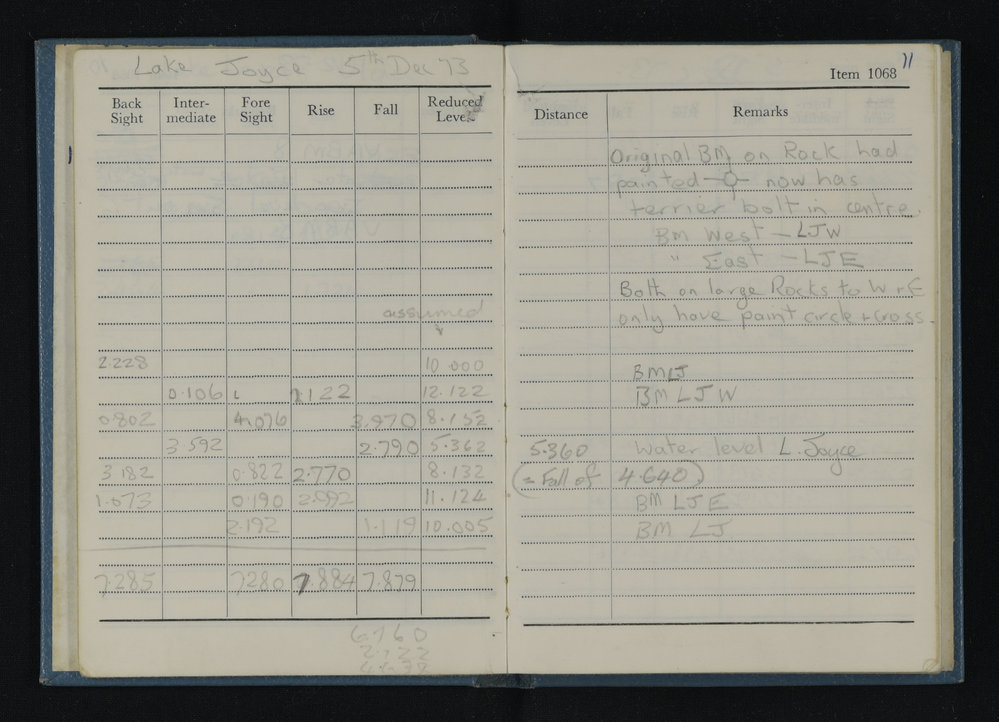 Lake Joyce 5th Dec 73
Item 1068
11
Back Sight Inter-mediate Fore Sight Rise Fall Reduced Level
Distance Remarks
Original BM on Rock had
painted now has
terrier bolt in centre.
BM West - LJW
" East - LJE
Both on large Rocks to W + E
only have paint circle + Cross.
assumed
2.228 10.000 BM LJ
0.106 2.122 12.122 BM LJW
0.802 4.076 3.970 8.152
3.592 2.790 5.362 5.360 Water level L. Joyce
3.182 0.822 2.770 8.132 = Fall of 4.640
1.073 0.190 2.992 11.124 BM LJE
2.192 1.119 10.005 BM LJ
7.285 7280 7.884 7.879
6760
2.122